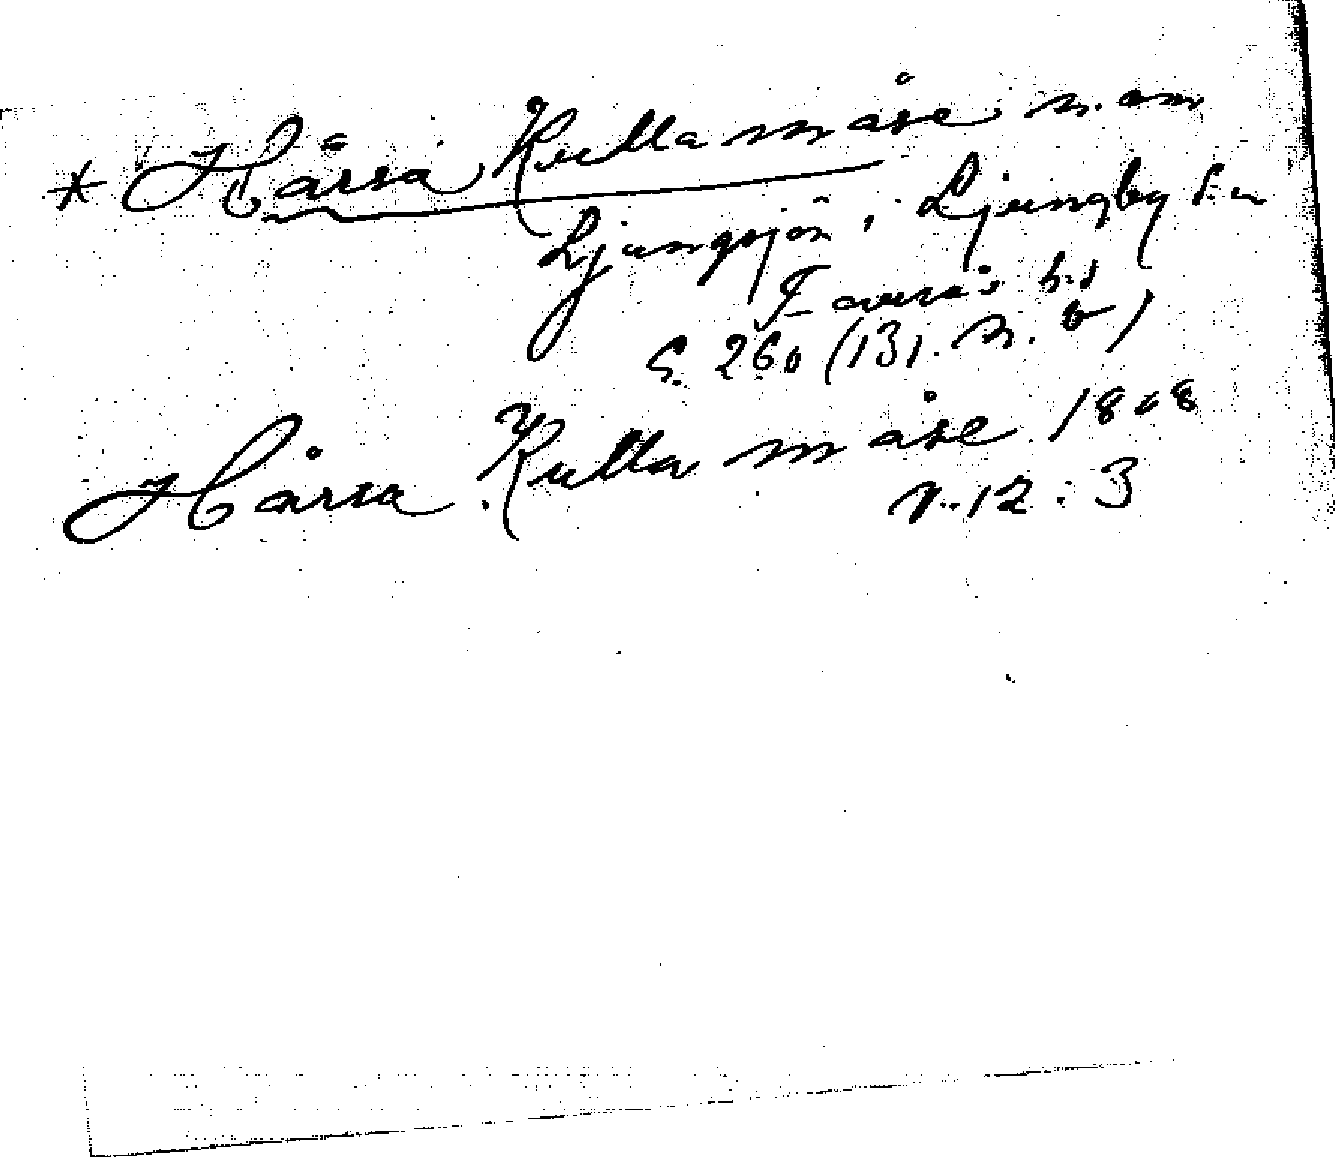 * Hårsa Kulla måse n. om
Ljungsjön, Ljungby s:n
Faurås h:d
S. 260 (131. n. b)
Hårsa Kulla måse 1808
v. 12:3